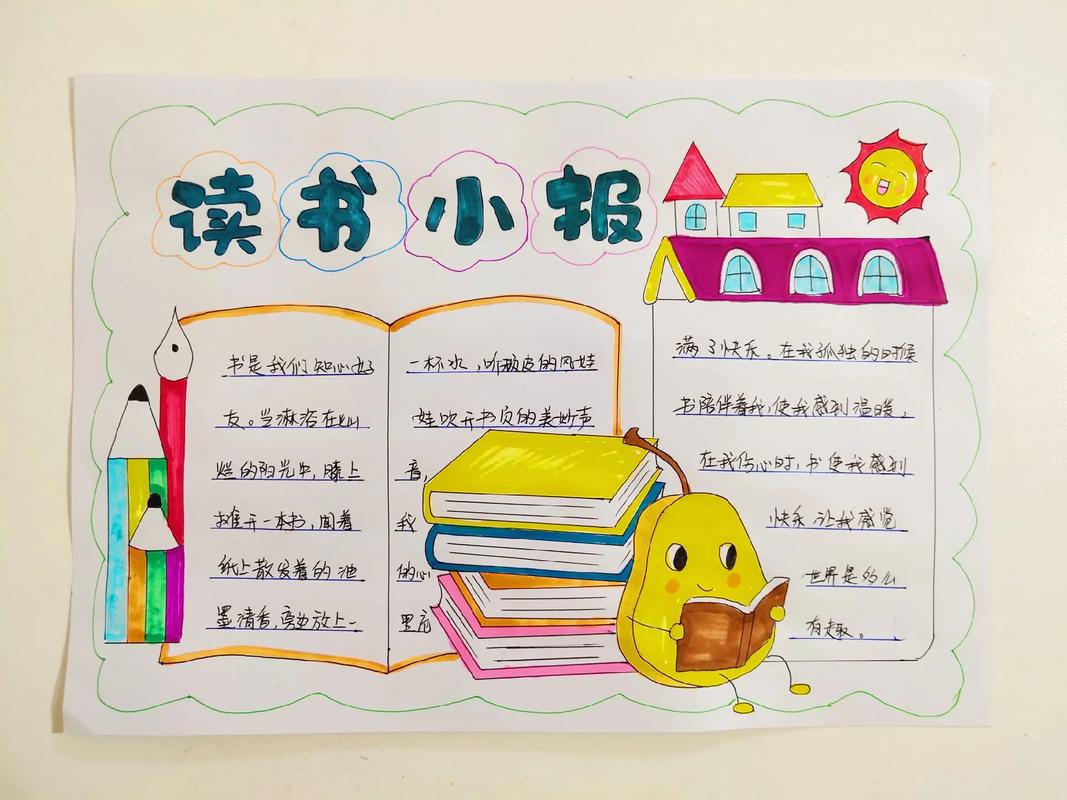 读书小报
书是我们知心好
友。当淋浴在灿
烂的阳光中,膝上
摊开一本书,闻着
纸上散发着的油
墨清香,旁边放上一
一杯水,听顽皮的风娃
娃吹开书页的美妙声
音,
我
的心
里充
满了快乐。在我孤独的时候
书陪伴着我,使我感到温暖,
在我伤心时,书使我感到
快乐让我感觉
世界是多么
有趣。